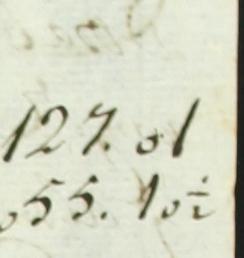 127. 01
055. 10½